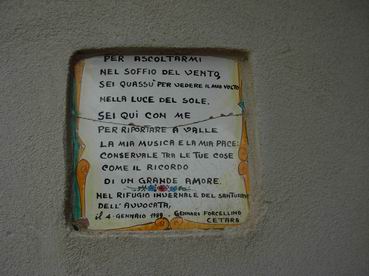 PER ASCOLTARMI
NEL SOFFIO DEL VENTO,
SEI QUASSU' PER VEDERE IL MIO VOLTO
NELLA LUCE DEL SOLE.
SEI QUI CON ME
PER RIPORTARE A VALLE
LA MIA MUSICA E LA MIA PACE:
CONSERVALE TRA LE TUE COSE
COME IL RICORDO
DI UN GRANDE AMORE.
NEL RIFUGIO INVERNALE DEL SANTUARIO
DELL'AVVOCATA,
il 4. GENNAIO 1989. GENNARO FORCELLINO
CETARA